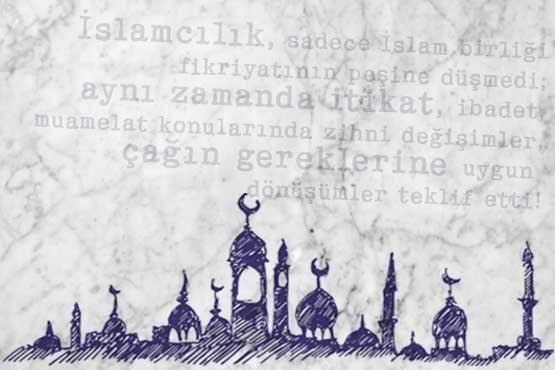 İslamcılık, sadece İslam birliği
fikriyatının peşine düşmedi;
aynı zamanda itikat, ibadet,
muamelat konularında zihni değişimler,
çağın gereklerine uygun
dönüşümler teklif etti!